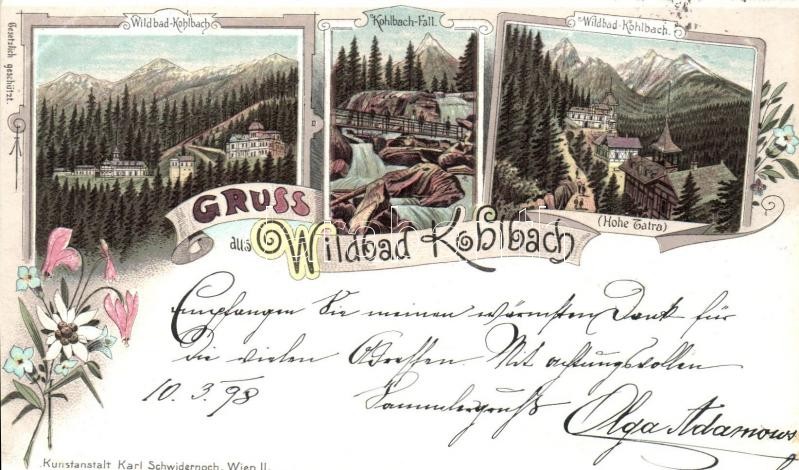 Gesetzlich geschützt.
Wildbad-Kohlbach
Kohlbach-Fall.
Wildbad-Kohlbach.
(Hohe Tatra)
GRUSS
aus Wildbad Kohlbach
Empfangen Sie meinen wärmsten Dank für
die vielen Adressen. Mit achtungsvollen
10.3.98 Sammlergruß
Olga Adamows
Kunstanstalt Karl Schwidernoch, Wien II.